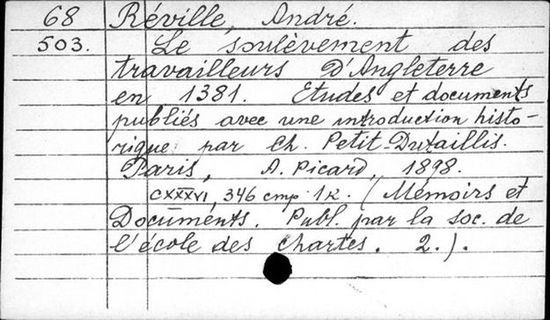 68 Réville, André.
503. Le soulèvement des
travailleurs D'Angleterre
en 1381. Etudes et documents
publiés avec une introduction histo-
rique par Ch. Petit-Dutaillis.
Paris, A. Picard, 1898.
CXXXVI, 346 cmp 1 k. (Mémoirs et
Documents. Publ. par la soc. de
l'école des Chartes. 2.).